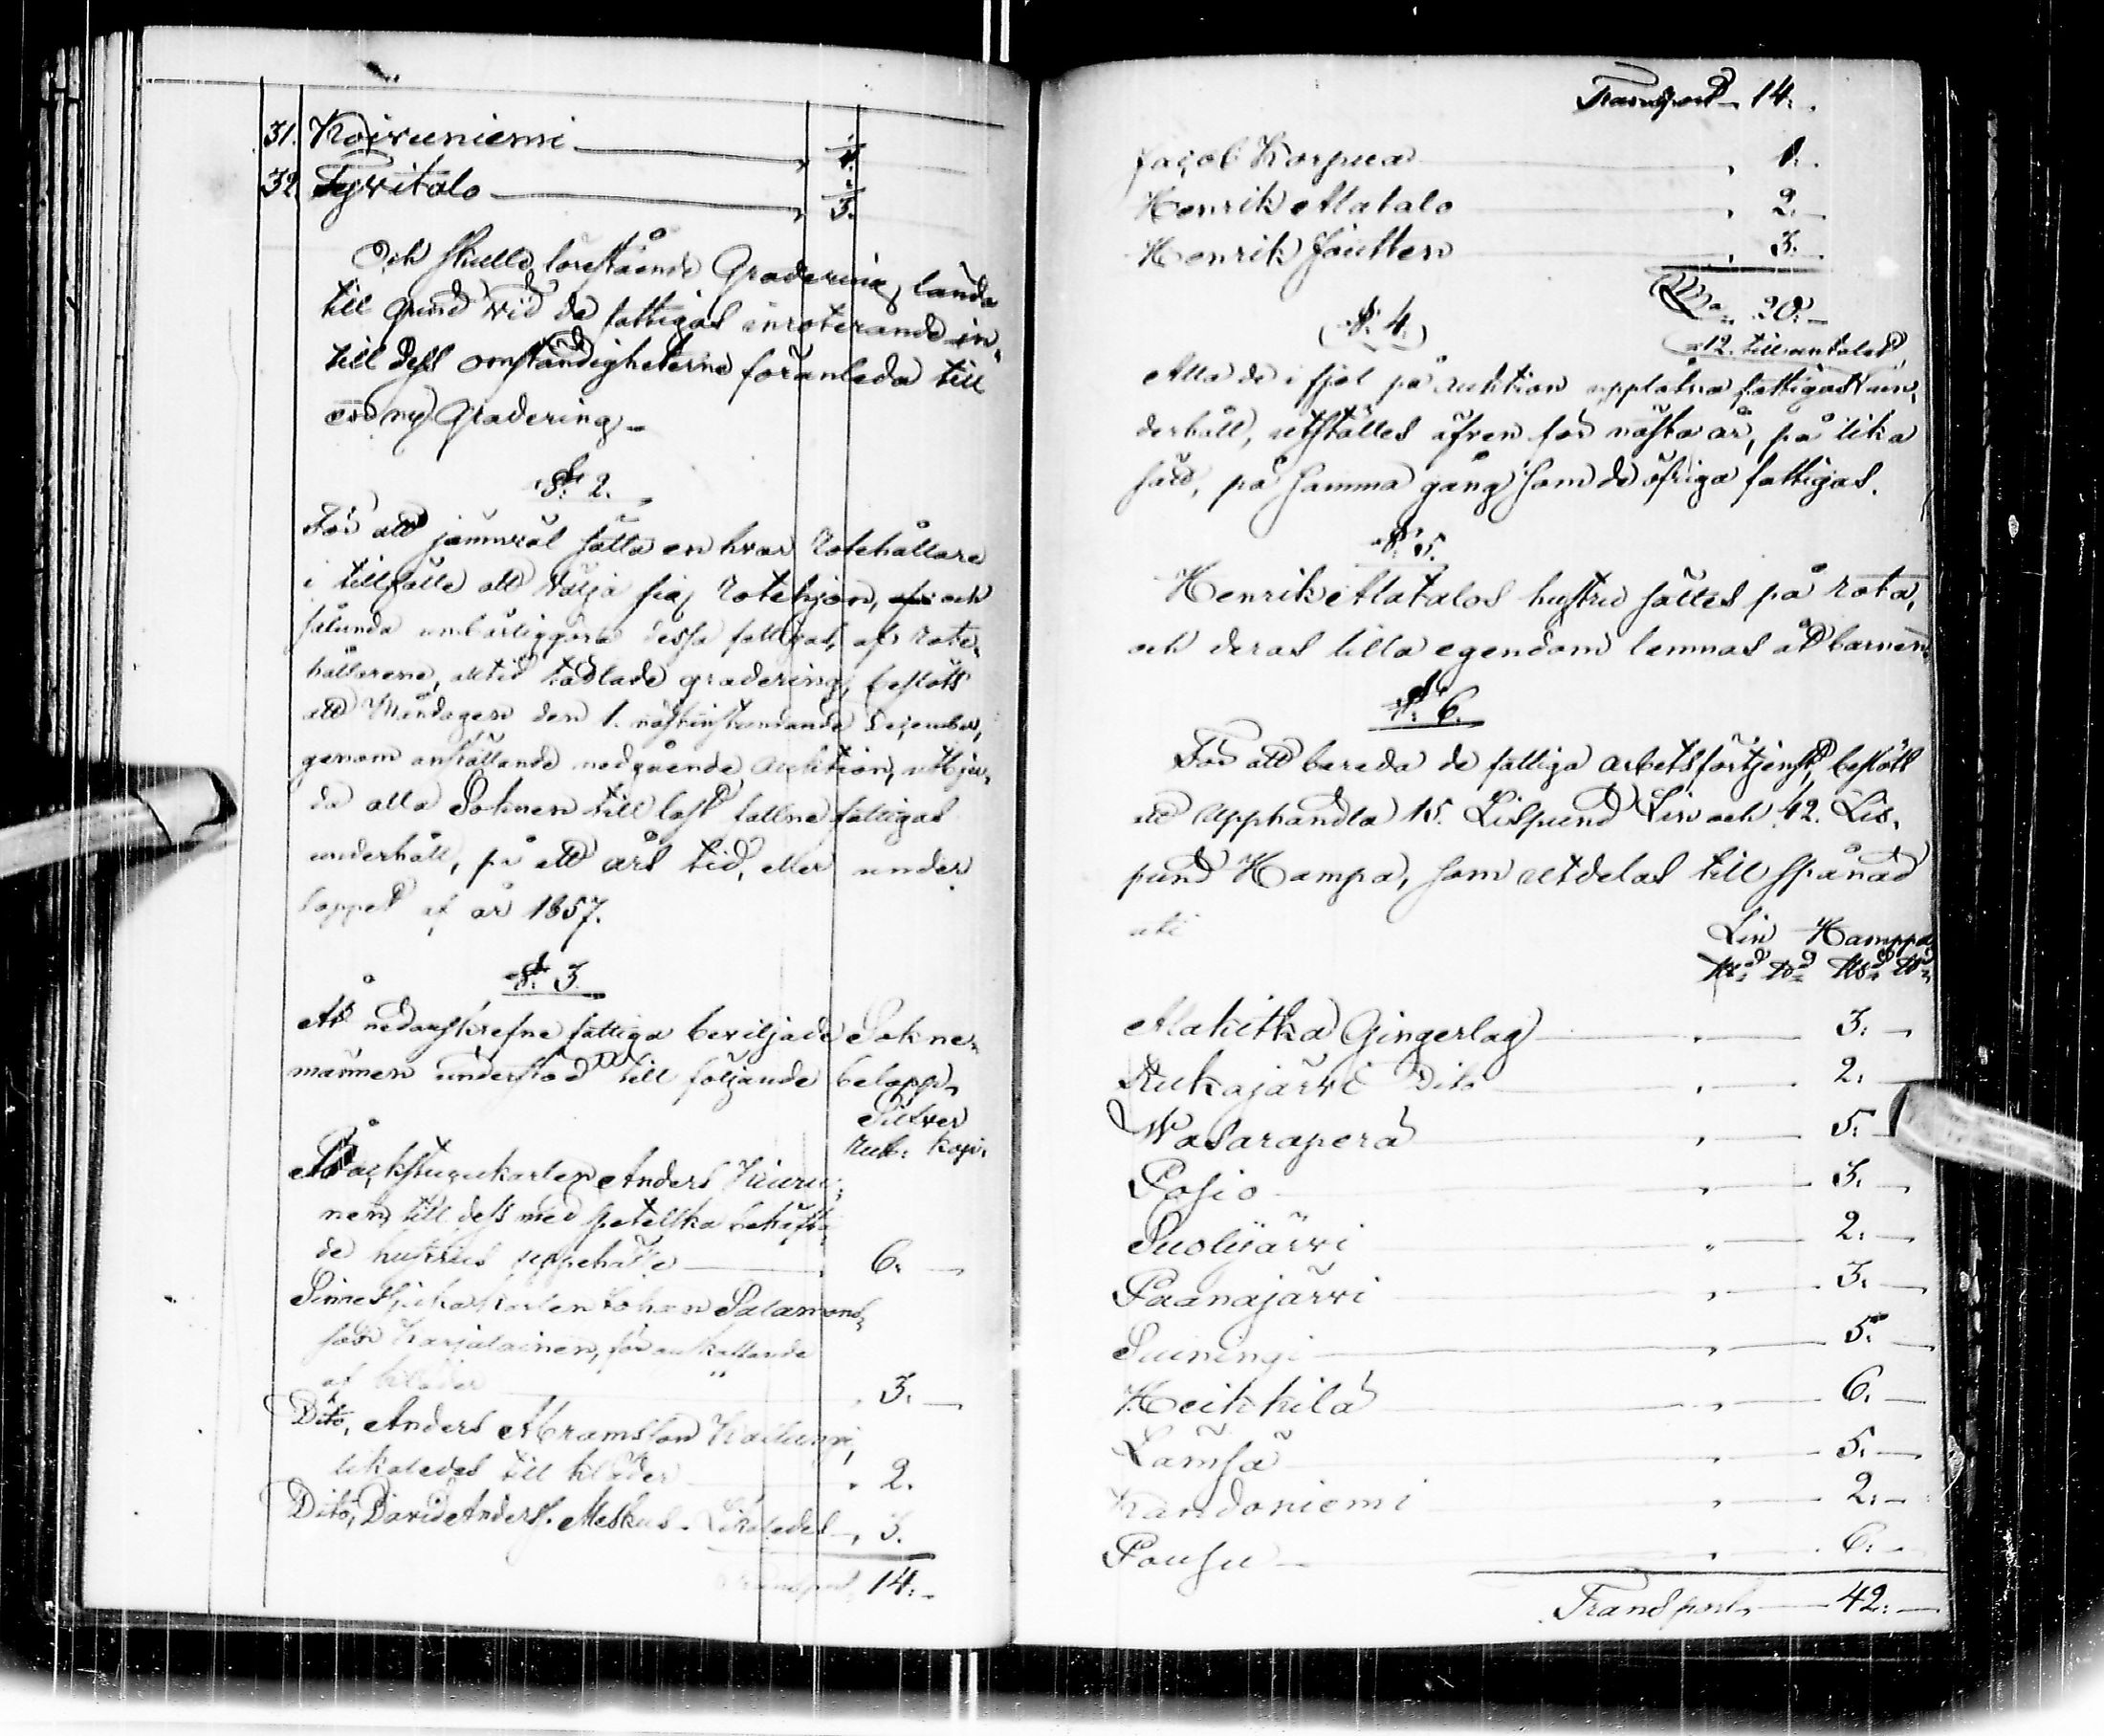 31. Koivuniemi
32. Tyvitalo
Och skulle förestående Gradering, lända
till grund vid de fattigas inroterande in,
till dess omständigheterne föranleda till
en ny Gradering.
§. 2.
För att jämnväl sätta en hvar Rotehållare
i tillfälle att välja sig Rotehjon, och
sålunda dessa fattigas, af rote,
hållarene, alltid gradering, beslöts
att Måndagen den 1. nästinstundande December,
genom anställande nedgående auktion, utbju,
da alla Soknen till last fallne fattigas
underhåll, på ett års tid, eller under
loppet af år 1857.
§. 3.
Åt nedanskrefne fattiga beviljade Sokne,
männen understöd till följande belopp,
Silfver
Rub: Kop:
Backstugukarlen Anders Kiuru,
nen, till dess med behäfta,
de hustrus uppehälle 6. —
Karlen Johan Salamons,
son Karjalainen, för anskaffande
af kläder 3. —
Dito, Anders Abramsson
likaledes till kläder 2.
Dito, David Anders. Meskus. Likaledes 3.
Transport 14. —
Transport 14. —
Jacob Korpua 1. —
Henrik Alatalo 2. —
Henrik Jäutten 3. —
S:a 20. —
12. till antalet
§. 4.
Alla de i fjol på auktion upplatna fattigas un,
derhåll, utställes äfven för nästa år, på lika
sätt, på samma gång som de öfriga fattigas.
§. 5.
Henrik Alatalos hustru sättes på rota,
och deras lilla egendom lemnas åt barnen.
§. 6.
För att bereda de fattiga arbetsförtjenst, beslöts
att upphandla 15. Lispund Lin och 42. Lis,
pund Hampa, som utdelas till spånad
uti
Lin Hampa
Alakitka Gingerlag 3. —
Kukajärvi Dito 2. —
Wasaraperä 5. —
Posio 3. —
Suolijärvi 2. —
Paanajärvi 3. —
Suiningi 5. —
Heikkilä 6. —
Lämsä 5. —
Kandoniemi 2. —
Pousu 6. —
Transport 42. —